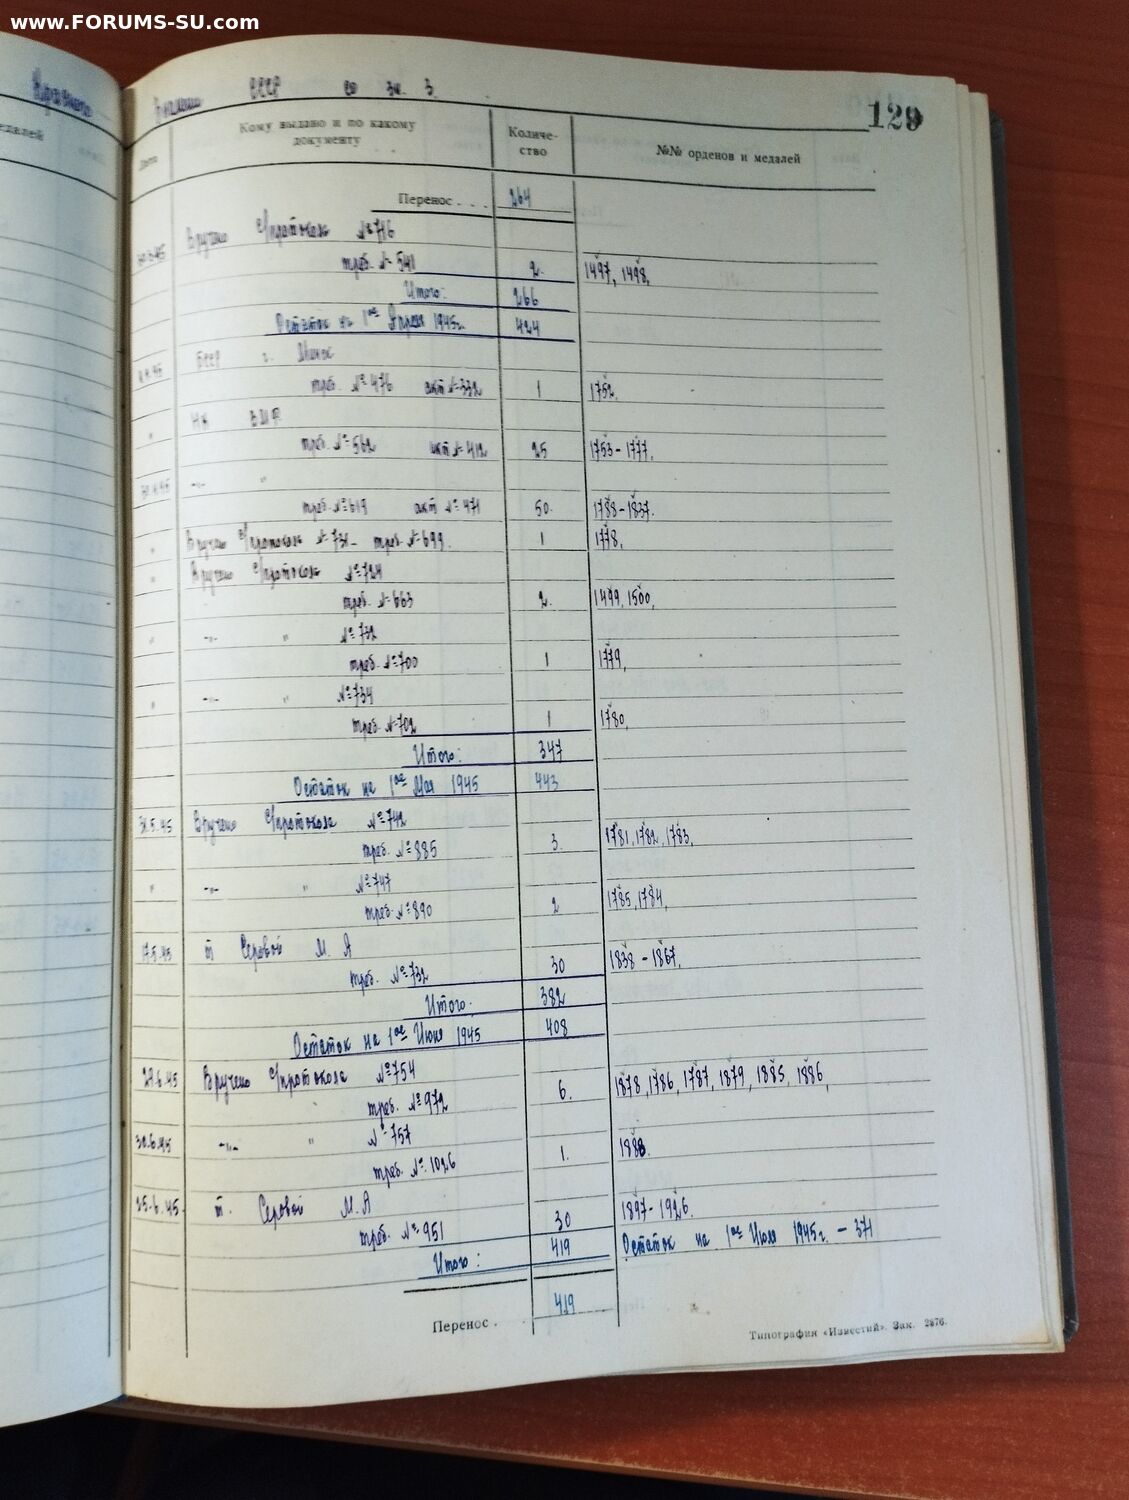 www.FORUMS-SU.com
Красного
Знамени СССР со зн. 3
129
едалей
Дата
Кому выдано и по какому документу
Количе-
ство
№№ орденов и медалей
Перенос . . . 264
Вручено с/протокола № 716
треб. № 541 2. 1497, 1498,
Итого: 266
Остаток на 1ое Апреля 1945г. 424
БССР г. Минск
треб. № 476 акт № 332 1 1752.
НК ВМФ
треб. № 562 акт № 412 25 1753-1777.
-"- "
треб. № 619 акт № 471 50. 1788-1837.
" Вручено с/протокола № 731- треб. № 699. 1 1778,
" Вручено с/протокола № 724
треб. № 663 2. 1499, 1500,
" -"- " № 732
треб. № 700 1 1779,
" -"- " № 734
треб. № 702 1 1780,
Итого: 347
Остаток на 1ое Мая 1945 443
31.5.45 Вручено с/протокола № 742
треб. № 885 3. 1781, 1782, 1783,
" -"- " № 747
треб. № 890 2 1785, 1784,
17.5.45 т Серовой М. А
треб. № 732 30 1838-1867,
Итого: 382
Остаток на 1ое Июня 1945 408
Вручено с/протокола № 754
треб. № 972 6. 1878, 1786, 1787, 1879, 1885, 1886,
30.6.45 -"- " № 757
треб. № 1026 1. 1888.
25.6.45. т. Серовой М. А
треб. № 951 30 1897-1926.
Итого: 419 Остаток на 1ое Июля 1945г. - 371
Перенос . 419
Типография «Известий». Зак. 2876.